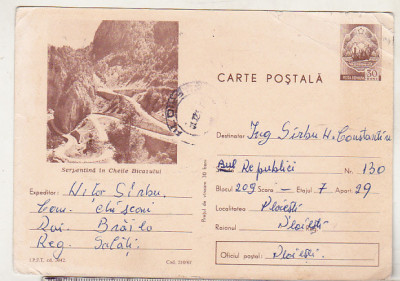 CARTE POȘTALĂ
POSTA ROMANA
30
BANI
Serpentină în Cheile Bicazului
PLOIEȘTI
Destinatar Ing Sîrbu N. Constantin
Bul Republicii Nr. 130
Blocul 209 Scara – Etajul 7 Apart 29
Localitatea Ploiești
Raionul Ploiești
Oficiul poștal: Ploiești
Expeditor: Nitor Sîrbu.
Com.
Rai. Brăila
Reg. Galați.
Prețul de vînzare 30 bani